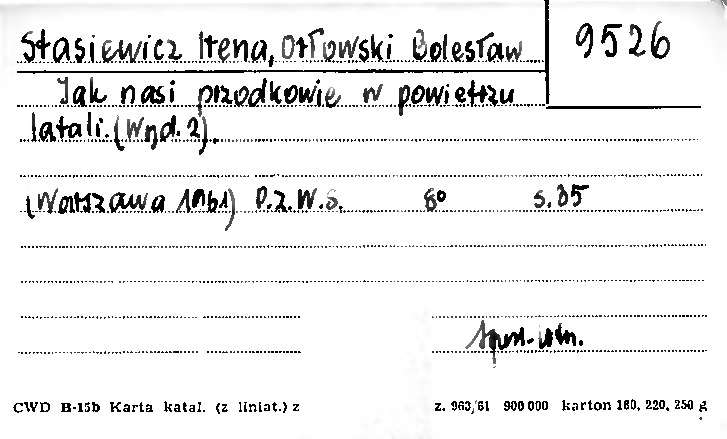 Stasiewicz Irena, Orłowski Bolesław
9526
Jak nasi przodkowie w powietrzu
latali. (Wyd. 2).
(Warszawa 1961) P.Z.W.S. 8° s. 85
CWD B-15b Karta katal. (z liniat.) z
z. 963/61 900 000 karton 160, 220, 250 g